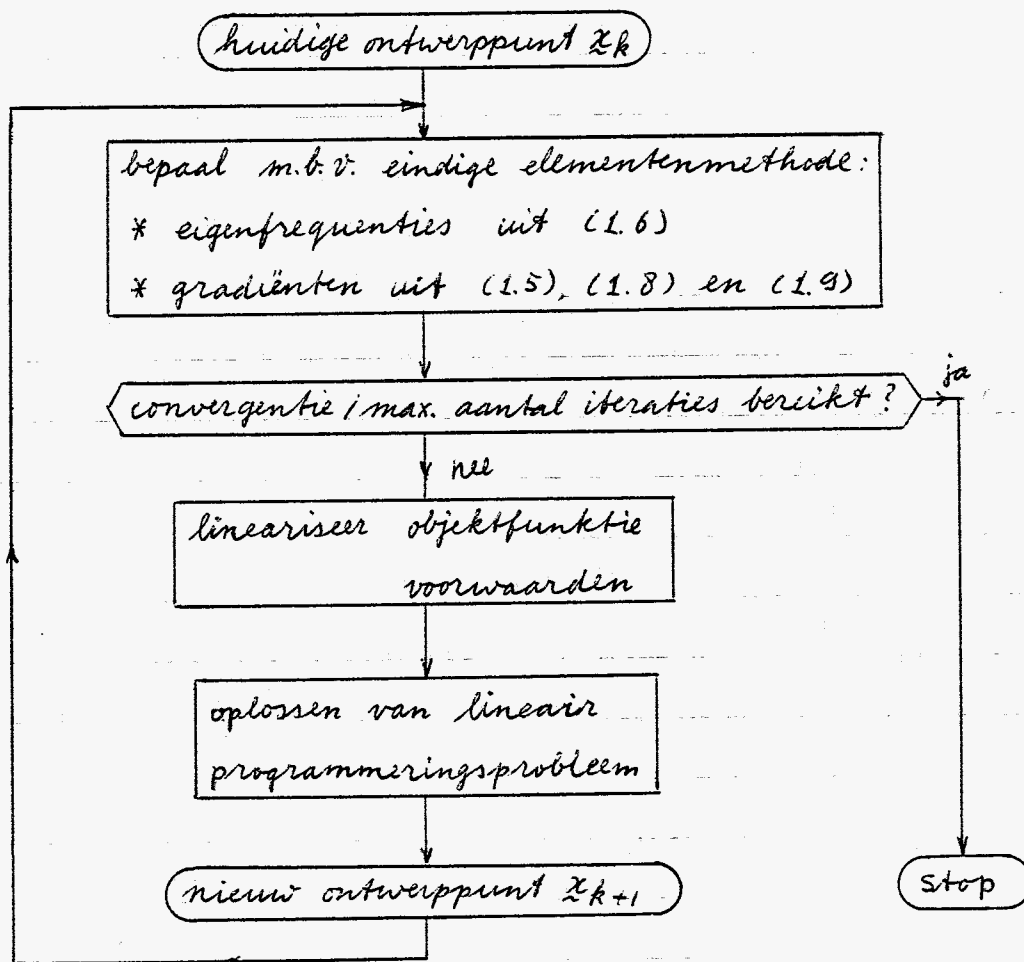 huidige ontwerppunt x̰k
bepaal m.b.v. eindige elementenmethode:
* eigenfrequenties uit (1.6)
* gradiënten uit (1.5), (1.8) en (1.9)
ja
convergentie / max. aantal iteraties bereikt?
nee
lineariseer objektfunktie
voorwaarden
oplossen van lineair
programmeringsprobleem
nieuw ontwerppunt x̰k+1
stop